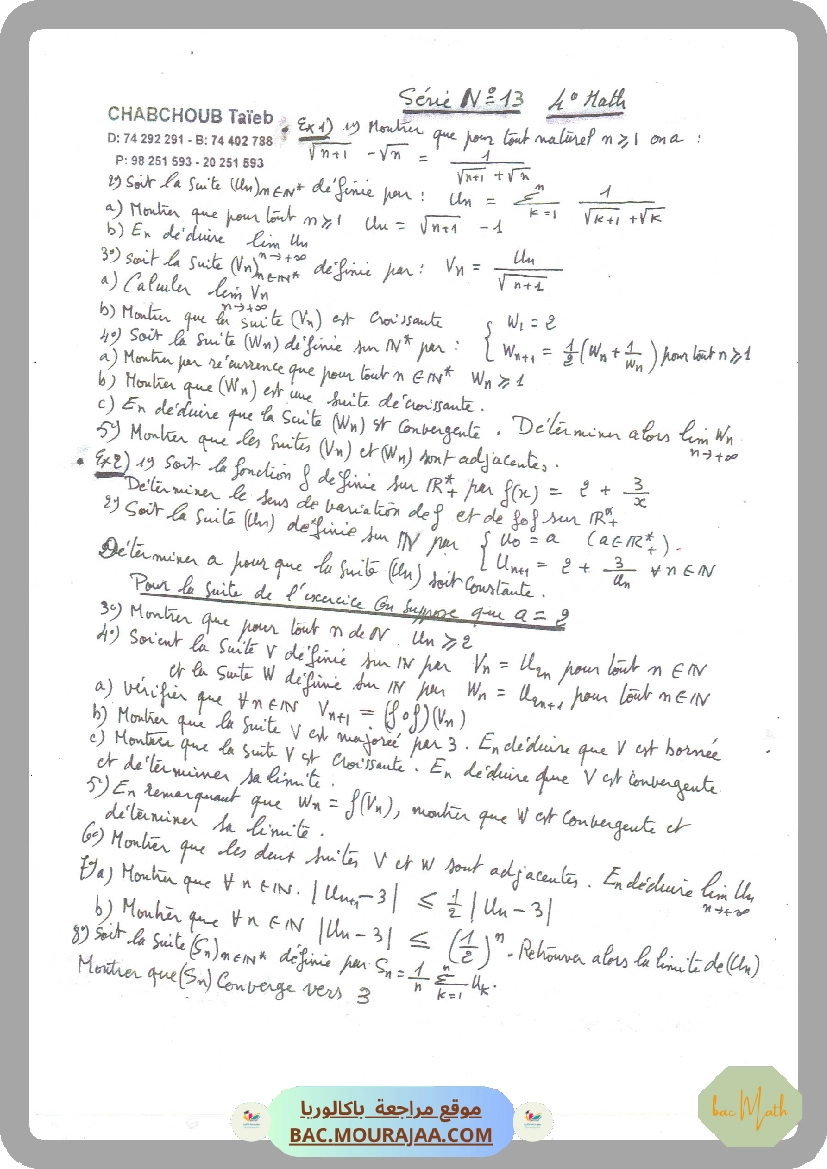 Série N° 13 4° Math
CHABCHOUB Taïeb
D: 74 292 291 - B: 74 402 788
P: 98 251 593 - 20 251 593
Ex 1) 1°) Montrer que pour tout naturel n ≥ 1 on a :
√n+1 - √n = 1 / (√n+1 + √n)
2°) Soit la suite (Un)n∈IN* définie par : Un = Σ(k=1 à n) 1 / (√k+1 + √k)
a) Montrer que pour tout n ≥ 1 Un = √n+1 - 1
b) En déduire lim Un n→+∞
3°) Soit la suite (Vn)n∈IN* définie par : Vn = Un / √n+1
a) Calculer lim Vn n→+∞
b) Montrer que la suite (Vn) est croissante
4°) Soit la suite (Wn) définie sur IN* par : { W1 = 2
Wn+1 = 1/2 (Wn + 1/Wn) pour tout n ≥ 1
a) Montrer par récurrence que pour tout n ∈ IN* Wn ≥ 1
b) Montrer que (Wn) est une suite décroissante.
c) En déduire que la suite (Wn) est convergente. Déterminer alors lim Wn n→+∞
5°) Montrer que les suites (Vn) et (Wn) sont adjacentes.
Ex 2) 1°) Soit la fonction f définie sur IR*+ par f(x) = 2 + 3/x
Déterminer le sens de variation de f et de fof sur IR*+
2°) Soit la suite (Un) définie sur IN par { U0 = a (a ∈ IR*+).
Un+1 = 2 + 3/Un ∀ n ∈ IN
Déterminer a pour que la suite (Un) soit constante.
Pour la suite de l'exercice on suppose que a = 2
3°) Montrer que pour tout n de IN Un ≥ 2
4°) Soient la suite V définie sur IN par Vn = U2n pour tout n ∈ IN
et la suite W définie sur IN par Wn = U2n+1 pour tout n ∈ IN
a) Vérifier que ∀ n ∈ IN Vn+1 = (fof)(Vn)
b) Montrer que la suite V est majorée par 3. En déduire que V est bornée
c) Montrer que la suite V est croissante. En déduire que V est convergente
et déterminer sa limite.
5°) En remarquant que Wn = f(Vn), montrer que W est convergente et
déterminer sa limite.
6°) Montrer que les deux suites V et W sont adjacentes. En déduire lim Un n→+∞
7°) a) Montrer que ∀ n ∈ IN. |Un+1 - 3| ≤ 1/2 |Un - 3|
b) Montrer que ∀ n ∈ IN |Un - 3| ≤ (1/2)^n. Retrouver alors la limite de (Un)
8°) Soit la suite (Sn)n∈IN* définie par Sn = 1/n Σ(k=1 à n) Uk.
Montrer que (Sn) converge vers 3
موقع مراجعة باكالوريا
BAC.MOURAJAA.COM
bac Math